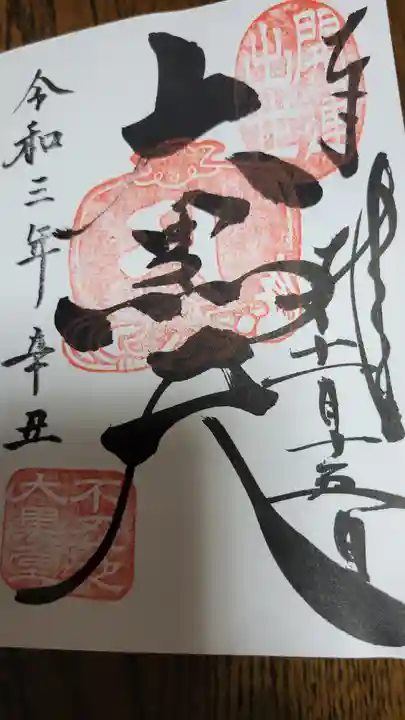 奉拝
十一月十五日
大黒天
令和三年辛丑
開運
出世
大黒堂